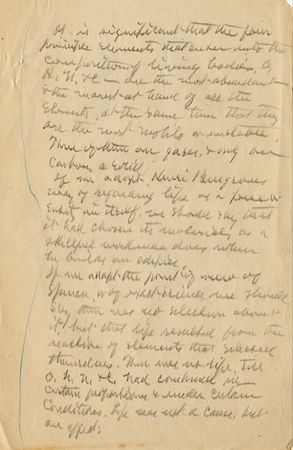 It is significant that the four
principle elements that enter into the
composition of living bodies, O,
H, N, & C — are the most abundant
& the nearest at hand of all the
elements, at the same time that they
are the most mobile or unstable.
Three of them are gases, & only one
Carbon, a solid.
If we adopt Henri Bergsons
way of regarding life as a
Entity in itself, we should say that
it had chosen its materials, as a
skilful workman does when
he builds an edifice.
If we adopt the point of view of
Spencer, or of exact science we should
say there was no selection about
it but that life resulted from the
reaction of elements that selected
themselves. There was no life, till
O, H, N, & C, had combined in
certain proportions & under certain
Conditions. Life was not a cause, but
an effect: